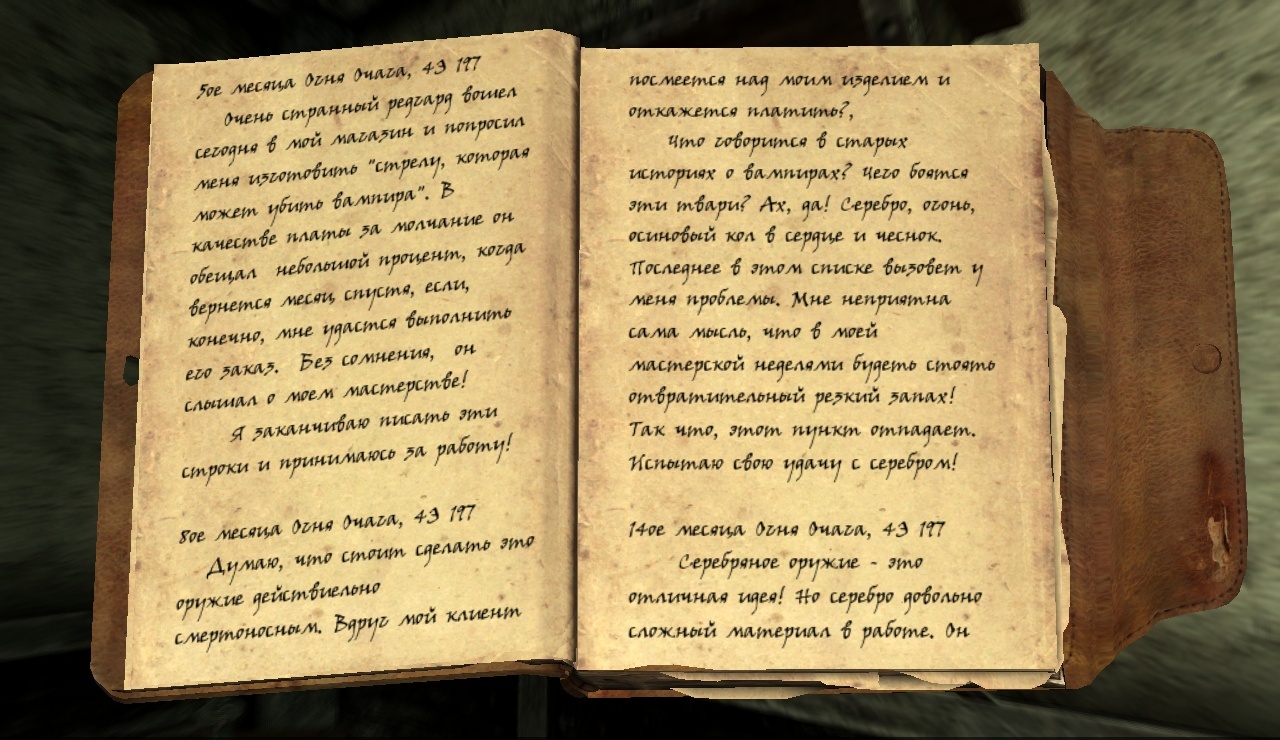 5ое месяца Огня Очага, 4Э 197
Очень странный редгард вошел
сегодня в мой магазин и попросил
меня изготовить "стрелу, которая
может убить вампира". В
качестве платы за молчание он
обещал небольшой процент, когда
вернется месяц спустя, если,
конечно, мне удастся выполнить
его заказ. Без сомнения, он
слышал о моем мастерстве!
Я заканчиваю писать эти
строки и принимаюсь за работу!
8ое месяца Огня Очага, 4Э 197
Думаю, что стоит сделать это
оружие действиельно
смертоносным. Вдруг мой клиент
посмеется над моим изделием и
откажется платить?,
Что говорится в старых
историях о вампирах? Чего боятся
эти твари? Ах, да! Серебро, огонь,
осиновый кол в сердце и чеснок.
Последнее в этом списке вызовет у
меня проблемы. Мне неприятна
сама мысль, что в моей
мастерской неделями будеть стоять
отвратительный резкий запах!
Так что, этот пункт отпадает.
Испытаю свою удачу с серебром!
14ое месяца Огня Очага, 4Э 197
Серебряное оружие - это
отличная идея! Но серебро довольно
сложный материал в работе. Он